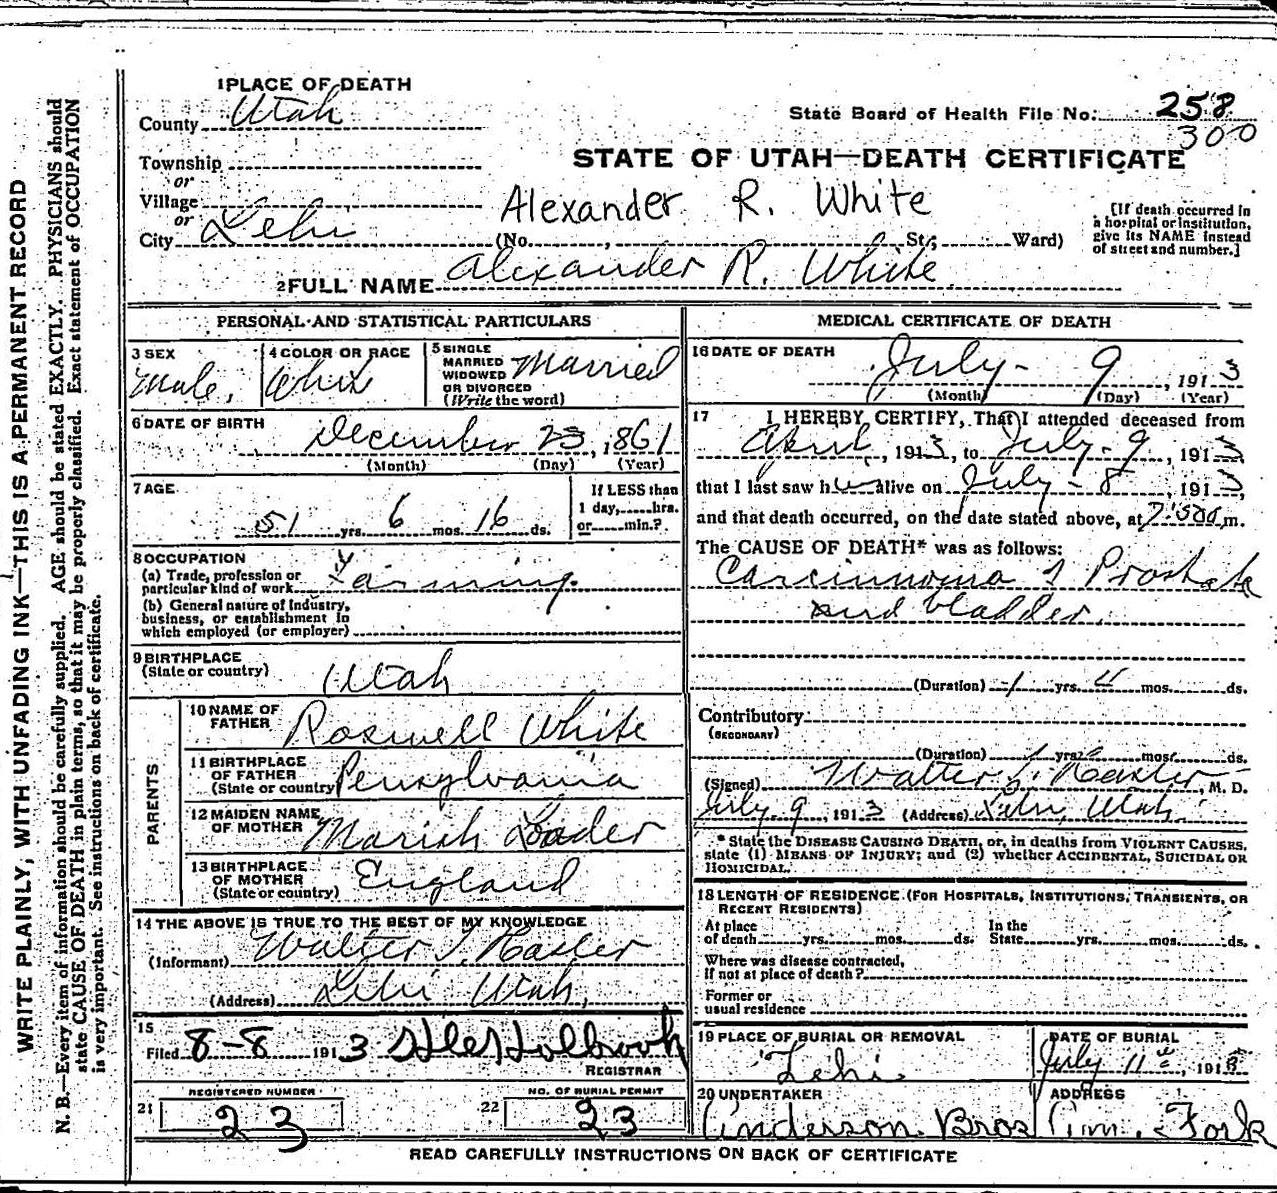 WRITE PLAINLY, WITH UNFADING INK—THIS IS A PERMANENT RECORD
N. B.—Every item of information should be carefully supplied. AGE should be stated EXACTLY. PHYSICIANS should
state CAUSE OF DEATH in plain terms, so that it may be properly classified. Exact statement of OCCUPATION
is very important. See instructions on back of certificate.
1 PLACE OF DEATH
County Utah
State Board of Health File No. 258
300
Township
or
STATE OF UTAH—DEATH CERTIFICATE
Village
or
Alexander R. White
City Lehi (No. , St.; Ward)
[If death occurred in
a hospital or institution,
give its NAME instead
of street and number.]
2 FULL NAME Alexander R. White
PERSONAL AND STATISTICAL PARTICULARS
3 SEX
Male,
4 COLOR OR RACE
White
5 SINGLE
MARRIED
WIDOWED
OR DIVORCED
(Write the word)
Married
6 DATE OF BIRTH
December 23, 1861
(Month) (Day) (Year)
7 AGE
51 yrs. 6 mos. 16 ds.
If LESS than
1 day, hrs.
or min.?
8 OCCUPATION
(a) Trade, profession or
particular kind of work Farming
(b) General nature of industry,
business, or establishment in
which employed (or employer)
9 BIRTHPLACE
(State or country)
Utah
PARENTS
10 NAME OF
FATHER Roswell White
11 BIRTHPLACE
OF FATHER
(State or country) Pensylvania
12 MAIDEN NAME
OF MOTHER Mariah Loader
13 BIRTHPLACE
OF MOTHER
(State or country) England
14 THE ABOVE IS TRUE TO THE BEST OF MY KNOWLEDGE
(Informant) Walter T. Hasler
(Address) Lehi Utah,
15
Filed 8-8 1913 Holbrook
REGISTRAR
REGISTERED NUMBER
21 23
NO. OF BURIAL PERMIT
22 23
MEDICAL CERTIFICATE OF DEATH
16 DATE OF DEATH
July - 9, 1913
(Month) (Day) (Year)
17 I HEREBY CERTIFY, That I attended deceased from
April, 1913, to July - 9, 1913,
that I last saw him alive on July - 8, 1913,
and that death occurred, on the date stated above, at m.
The CAUSE OF DEATH* was as follows:
Carcinnoma of Prostate
and bladder.
(Duration) 1 yrs. 4 mos. ds.
Contributory
(SECONDARY)
(Duration) yrs. mos. ds.
(Signed) Walter T. Hasler, M. D.
July 9, 1913 (Address) Lehi, Utah.
* State the DISEASE CAUSING DEATH, or, in deaths from VIOLENT CAUSES,
state (1) MEANS OF INJURY; and (2) whether ACCIDENTAL, SUICIDAL OR
HOMICIDAL.
18 LENGTH OF RESIDENCE (FOR HOSPITALS, INSTITUTIONS, TRANSIENTS, OR
RECENT RESIDENTS)
At place
of death yrs. mos. ds.
In the
State yrs. mos. ds.
Where was disease contracted,
if not at place of death?
Former or
usual residence
19 PLACE OF BURIAL OR REMOVAL
Lehi.
DATE OF BURIAL
July 11th, 1913
20 UNDERTAKER
Anderson Bros
ADDRESS
Am. Fork
READ CAREFULLY INSTRUCTIONS ON BACK OF CERTIFICATE